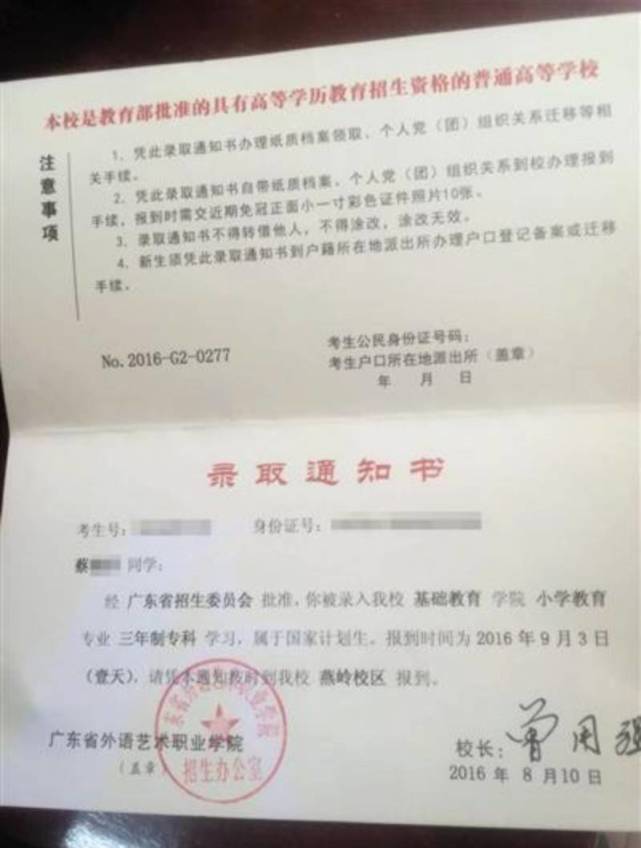 本校是教育部批准的具有高等学历教育招生资格的普通高等学校
注意事项
1、凭此录取通知书办理纸质档案领取、个人党（团）组织关系迁移等相
关手续。
2、凭此录取通知书自带纸质档案、个人党（团）组织关系到校办理报到
手续，报到时需交近期免冠正面小一寸彩色证件照片10张。
3、录取通知书不得转借他人，不得涂改，涂改无效。
4、新生须凭此录取通知书到户籍所在地派出所办理户口登记备案或迁移
手续。
No.2016-G2-0277
考生公民身份证号码：
考生户口所在地派出所（盖章）
年 月 日
录取通知书
考生号：
身份证号：
蔡 同学：
经 广东省招生委员会 批准，你被录入我校 基础教育 学院 小学教育
专业 三年制专科 学习，属于国家计划生。报到时间为 2016 年 9 月 3 日
（壹天），请凭本通知按时到我校 燕岭校区 报到。
广东省外语艺术职业学院
（盖章）
招生办公室
校长：曾用强
2016 年 8 月 10 日